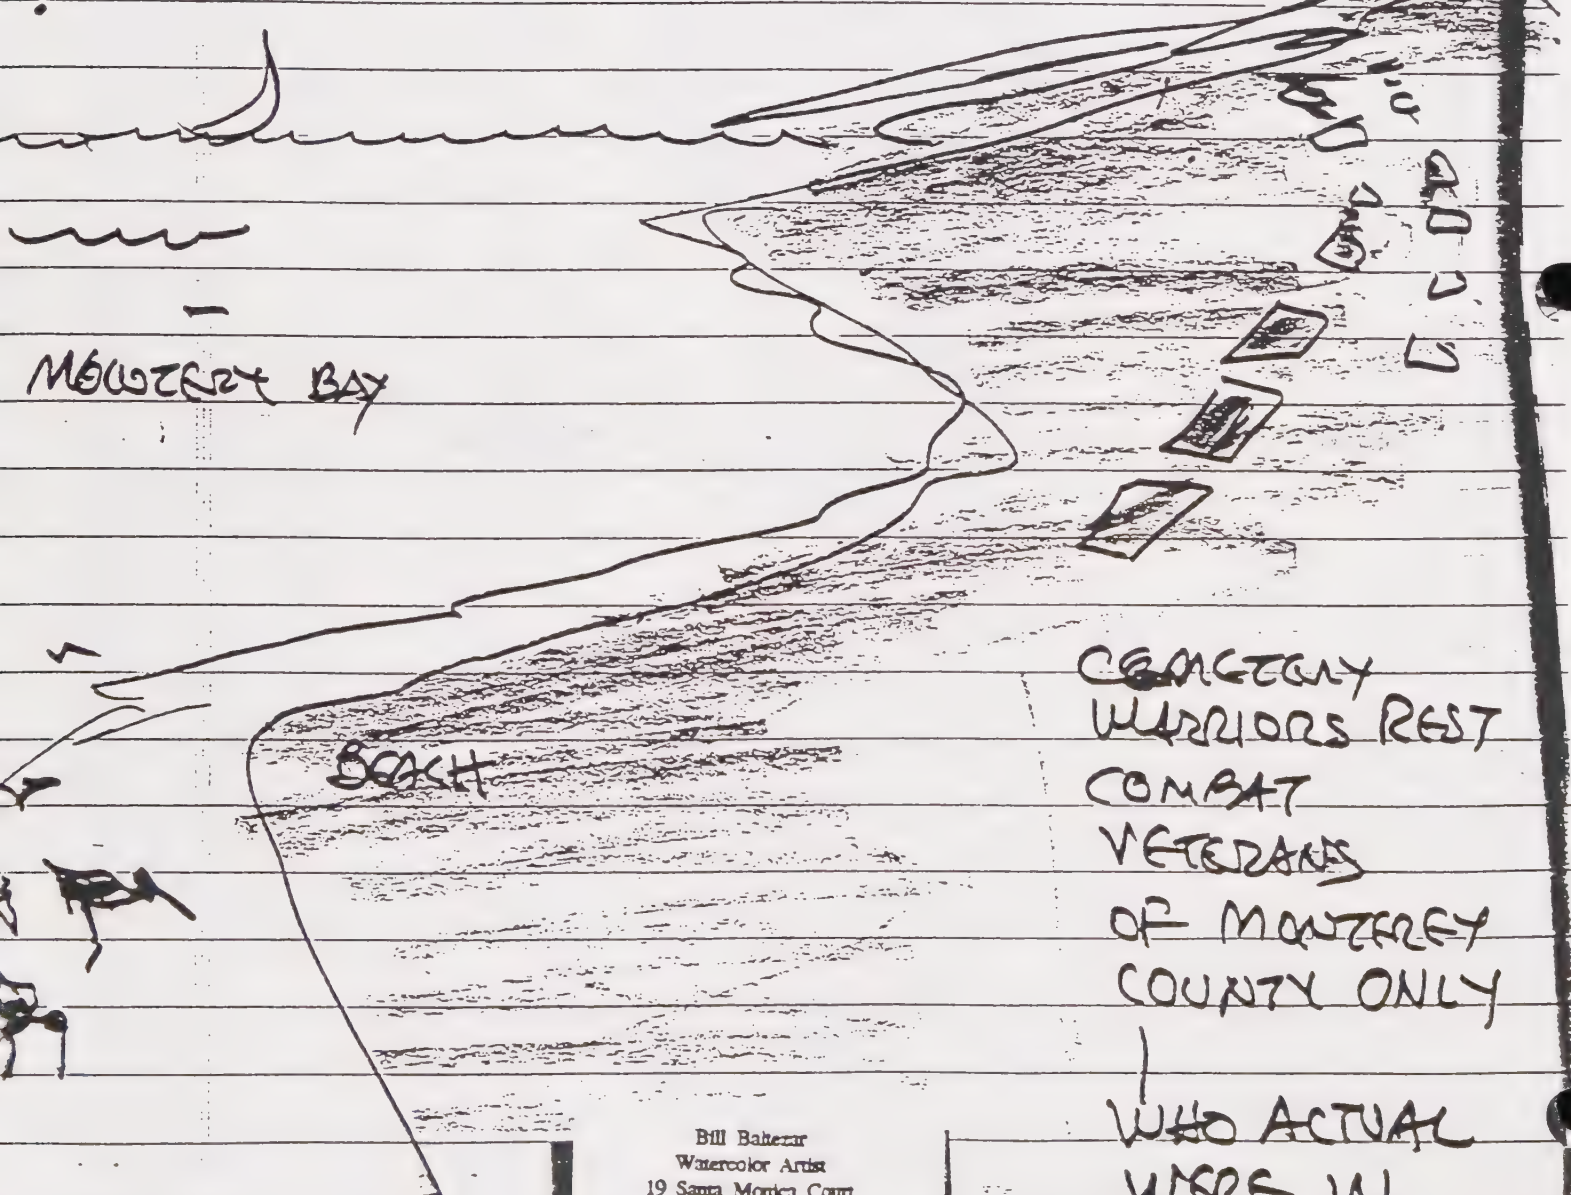 MONTERY BAY
BEACH
CEMETERY
WARRIORS REST
COMBAT
VETERANS
OF MONTEREY
COUNTY ONLY
WHO ACTUAL
WERE IN
Bill Baltezar
Watercolor Artist
19 Santa Monica Court